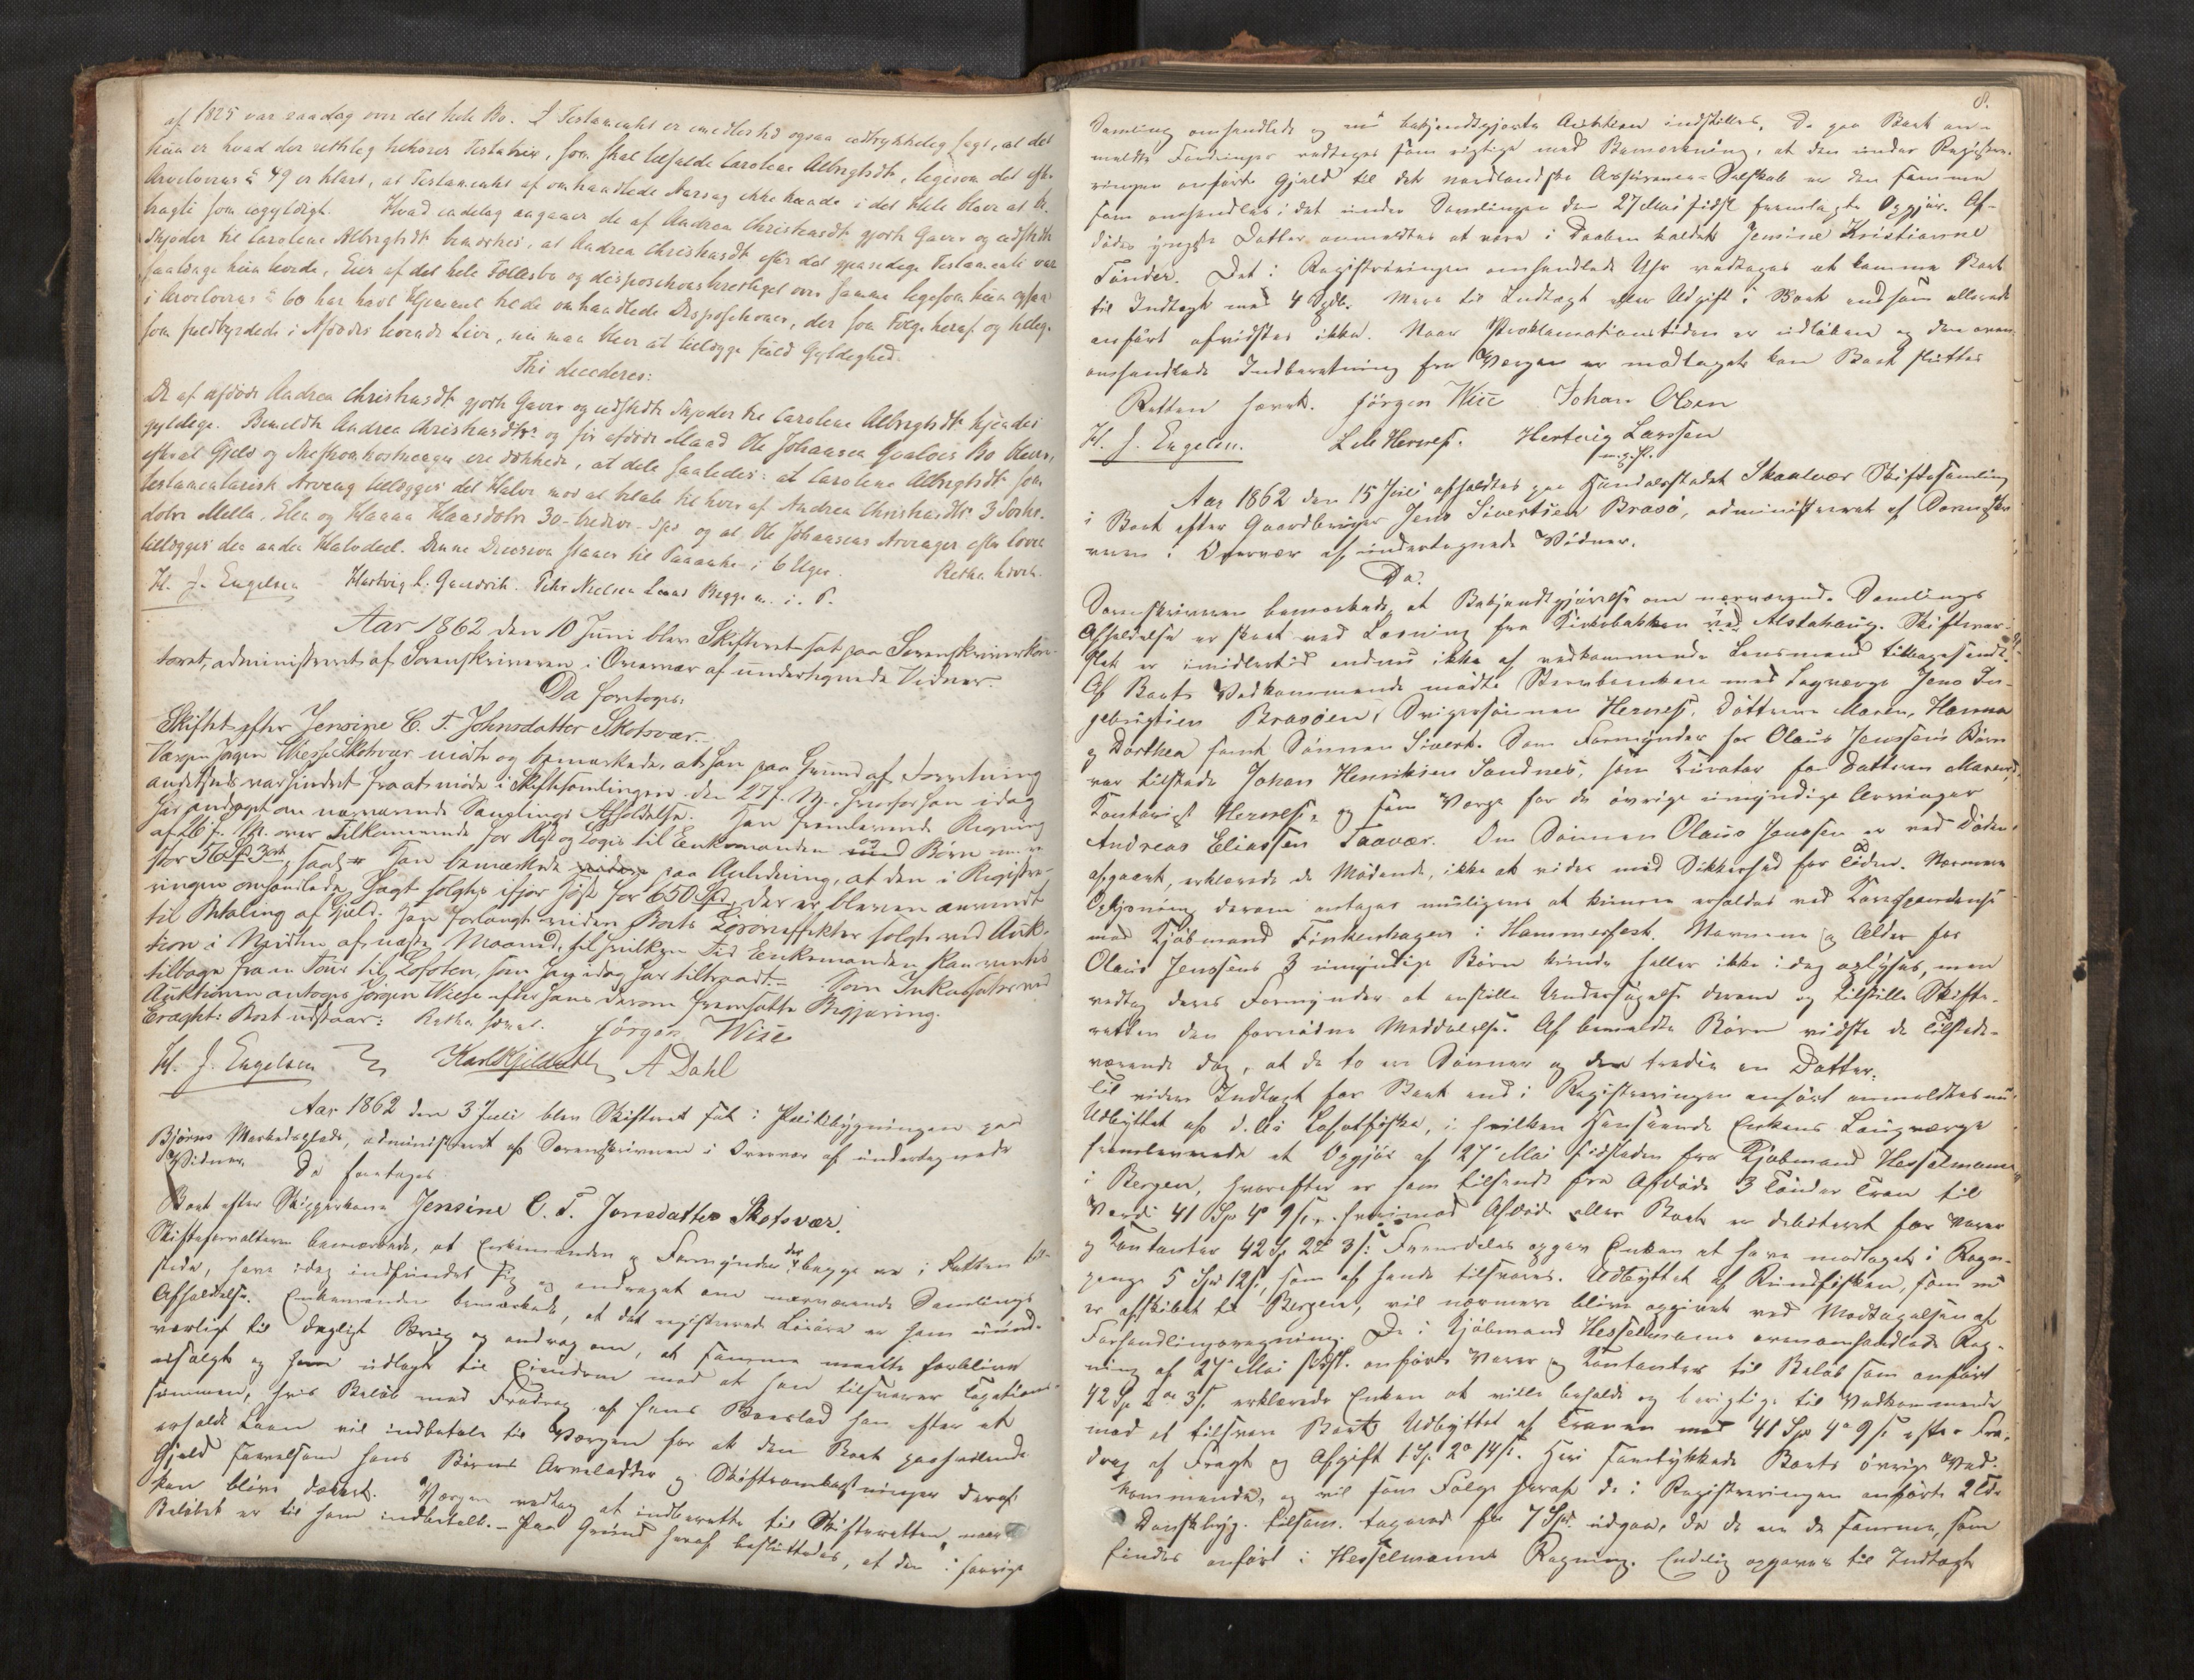 af 1825 var raadig over det hele Bo. I Testamentet er imedlertid ogsaa udtrykkelig sagt, at det
kun er hvad der rettelig tilhører Testatrix, som skal tilfalde Carolene Albrigtsdtr, ligesom det efter
Arvelovens § 49 er klart, at Testamentet af omhandlede Aarsag ikke kunde i det Hele blive at be-
tragte som ugyldigt. Hvad endelig angaaer de af Andrea Christiansdtr gjorte Gaver og udstedte
Skjøder til Carolene Albrigtsdtr bemærkes, at Andrea Christiansdtr efter det gjensidige Testamente var
saalænge hun levede, Eier af det hele Fællesbo og dispositionsberettiget over samme ligesom hun ogsaa
i Arvelovens § 60 har havt Hjemmel til de omhandlede Dispositioner, der som Følge heraf og tillige
som fuldbyrdede i Afdødes levende Live, nu maa blive at tillægge fuld Gyldighed.
Thi decideres:
De af afdøde Andrea Christiansdtr gjorte Gaver og udstedte Skjøder til Carolene Albrigtsdtr kjendes
gyldige. Bemeldte Andrea Christiansdtrs og før afdøde Mand Ole Johansen Qvaløes Bo bliver,
efterat Gjeld og Skifteomkostninger ere dækkede, at dele saaledes: at Carolene Albrigtsdtr som
testamentarisk Arving tillægges det Halve mod at betale til hver af Andrea Christiansdtrs 3 Søster-
døtre Mella, Elen og Hanna Hansdøtre 30 - tredive - Spd og at Ole Johansens Arvinger efter Loven
tillægges den anden Halvdeel. Denne Decision staaer til Paaanke i 6 Uger. Retten hævet.
H. J. Engelsen Hartvig L. Petter Nielsen Begge m. i. P.
Aar 1862 den 10 Juni blev Skifteret sat paa Sorenskriverkon-
toret, administreret af Sorenskriveren i Overvær af undertegnede Vidner.
Da foretoges:
Skiftet efter Jensine C. T. Johnsdatter Skotsvær.
Værgen Jørgen Wiese Skotsvær mødte og bemærkede, at han paa Grund af Forretning
andetsteds var hindret fra at møde i Skiftesamlingen den 27 f. M., hvorfor han idag
har andraget om nærværende Samlings Afholdelse. Han fremleverede Regning
af 26 f. M. over Tilkommende for Kost og Logis til Enkemanden og Børn m. v.
Han bemærkede paa Anledning, at den i Registre-
ringen omhandlede Jagt solgtes ifjor Høst for 650 Spd, der er bleven anvendt
til Betaling af Gjæld. Han forlangte videre Boets Løsøreeffekter solgte ved Auk-
tion i Midten af næste Maaned, til hvilken Tid Enkemanden kan ventes
tilbage fra en Tour til Lofoten, som han idag har tiltraadt. Som Inkassator ved
Auktionen antoges Jørgen Wiese efter hans derom fremsatte Begjæring.
Boet udstaar: Retten hævet. Jørgen Wise
H. J. Engelsen Karl Kjeldseth A Dahl
Aar 1862 den 3 Juli blev Skifteret sat i Politibygningen paa
Bjørns Markedsplads, administreret af Sorenskriveren i Overvær af undertegnede
Vidner. Da foretoges
Boet efter Skipperkone Jensine C. T. Jonsdatter Skotsvær.
Skifteforvalteren bemærkede, at Enkemanden og Formynder, der begge ere i Retten til-
stede, have idag indfundet sig og andraget om nærværende Samlings
Afholdelse. Enkemanden bemærkede, at det registrerede Løsøre er ham uund-
værligt til dagligt Brug og androg om, at samme maatte forblive
usolgt og ham udlagt til Eiendom mod at han tilsvarer Taxations-
summen, hvis Beløb med Fradrag af hans Boeslod han efter at
erholde Laan vil indbetale til Værgen for at den Boet paahvilende
Gjæld saavelsom hans Børns Arvelodder og Skifteomkostninger deraf
kan blive dækket. Værgen vedtog at indberette til Skifteretten, naar
Beløbet er til ham indbetalt. - Paa Grund heraf besluttedes, at den i forrige
8.
Samling omhandlede og nu bekjendtgjorte Auktion indstilles. De paa Boet an-
meldte Fordringer vedtages som rigtige med Bemærkning, at den under Registre-
ringen anførte Gjæld til det nordlandske Assurance-Selskab er den samme
som omhandles i det under Samlingen den 27 Mai sidst fremlagte Opgjør. Af-
dødes yngste Datter anmeldtes at være i Daaben kaldet Jensine Kristianne
Tønder. Det i Registreringen omhandlede Uhr vedtages at komme Boet
til Indtægt med 4 Spdl. Mere til Indtægt eller Udgift i Boet end som allerede
anført afvidstes ikke. Naar Proklamationstiden er udløben og den oven-
omhandlede Indberetning fra Værgen er modtaget kan Boet sluttes
Retten hævet. Jörgen Wise Johan Olsen
H. J. Engelsen. Hertvig Larssen
m. p. P.
Aar 1862 den 15 Juli afholdtes paa Handelsstedet Skaalvær Skiftesamling
i Boet efter Gaardbruger Jens Sivertsen Brasø, administreret af Sorenskri-
veren i Overvær af undertegnede Vidner.
Da.
Sorenskriveren bemærkede, at Bekjendtgjørelse om nærværende Samlings
Afholdelse er skeet ved Læsning fra Kirkebakken ved Alstahaug. Skiftevar-
slet er imidlertid endnu ikke af vedkommende Lensmand tilbagesendt.
Af Boets Vedkommende mødte Sterboenken med Lagværge Jens In-
gebrigtsen Brasøen, Svigersønnen Hernes, Døttrene Maren, Hanna
og Dorthea samt Sønnen Sivert. Som Formynder for Olaus Jenssens Børn
var tilstede Johan Henriksen Sandnes, som Kurator for Datteren Maren,
Kontorist Hernes, og som Værge for de øvrige umyndige Arvinger
Andreas Eliassen Taavær. Om Sønnen Olaus Jenssen er ved Døden
afgaaet, erklærede de Mødende, ikke at vides med Sikkerhed for Tiden. Nærmere
Oplysning derom antages muligens at kunne erholdes ved Korrespondence
med Kjøbmand Finkenhagen i Hammerfest. Navnene og Alder for
Olaus Jenssens 3 umyndige Børn kunde heller ikke idag oplyses, men
vedtog deres Formynder at anstille Undersøgelse derom og tilstille Skifte-
retten den fornødne Meddelelse. Af bemeldte Børn vidste de Tilstede-
værende dog, at de to er Sønner og den tredie en Datter.
Til videre Indtægt for Boet end i Registreringen anført anmeldtes nu
Udbyttet af d. A. Lofotfiske, i hvilken Henseende Enkens Laugværge
fremleverede et Opgjør af 27 Mai sidstleden fra Kjøbmand Hesselmann
i Bergen, hvorefter er ham tilsendt fra Afdøde 3 Tønder Tran til
Værdi 41 Sp 4 9 s., hvorimod Afdøde eller Boet er debiteret for Varer
og Kontanter 42 Sp 2 3 s. Fremdeles opgav Enken at have modtaget i Rogn-
penge 5 Spd 12 s., som af hende tilsvares. Udbyttet af Rundfisken, som nu
er afskibet til Bergen, vil nærmere blive opgivet ved Modtagelsen af
Forhandlingsregning. De i Kjøbmand Hesselmanns ovenomhandlede Reg-
ning af 27 Mai sidstl. anførte Varer og Kontanter til Beløb som anført
42 Sp 2 3 s. erklærede Enken at ville beholde og berigtige til Vedkommende
mod at tilsvare Boet Udbyttet af Tranen med 41 Sp 4 9 s. efter Fra-
drag af Fragt og Afgift 1 Sp 2 14 s. Heri samtykkede Boets øvrige Ved-
kommende, og vil som Følge heraf de i Registreringen anførte 2 Tdr
Danskbyg tilsam. taxeret for 7 Spd. udgaa, da de ere de samme, som
findes anført i Hesselmanns Regning. Endelig opgaves til Indtægt